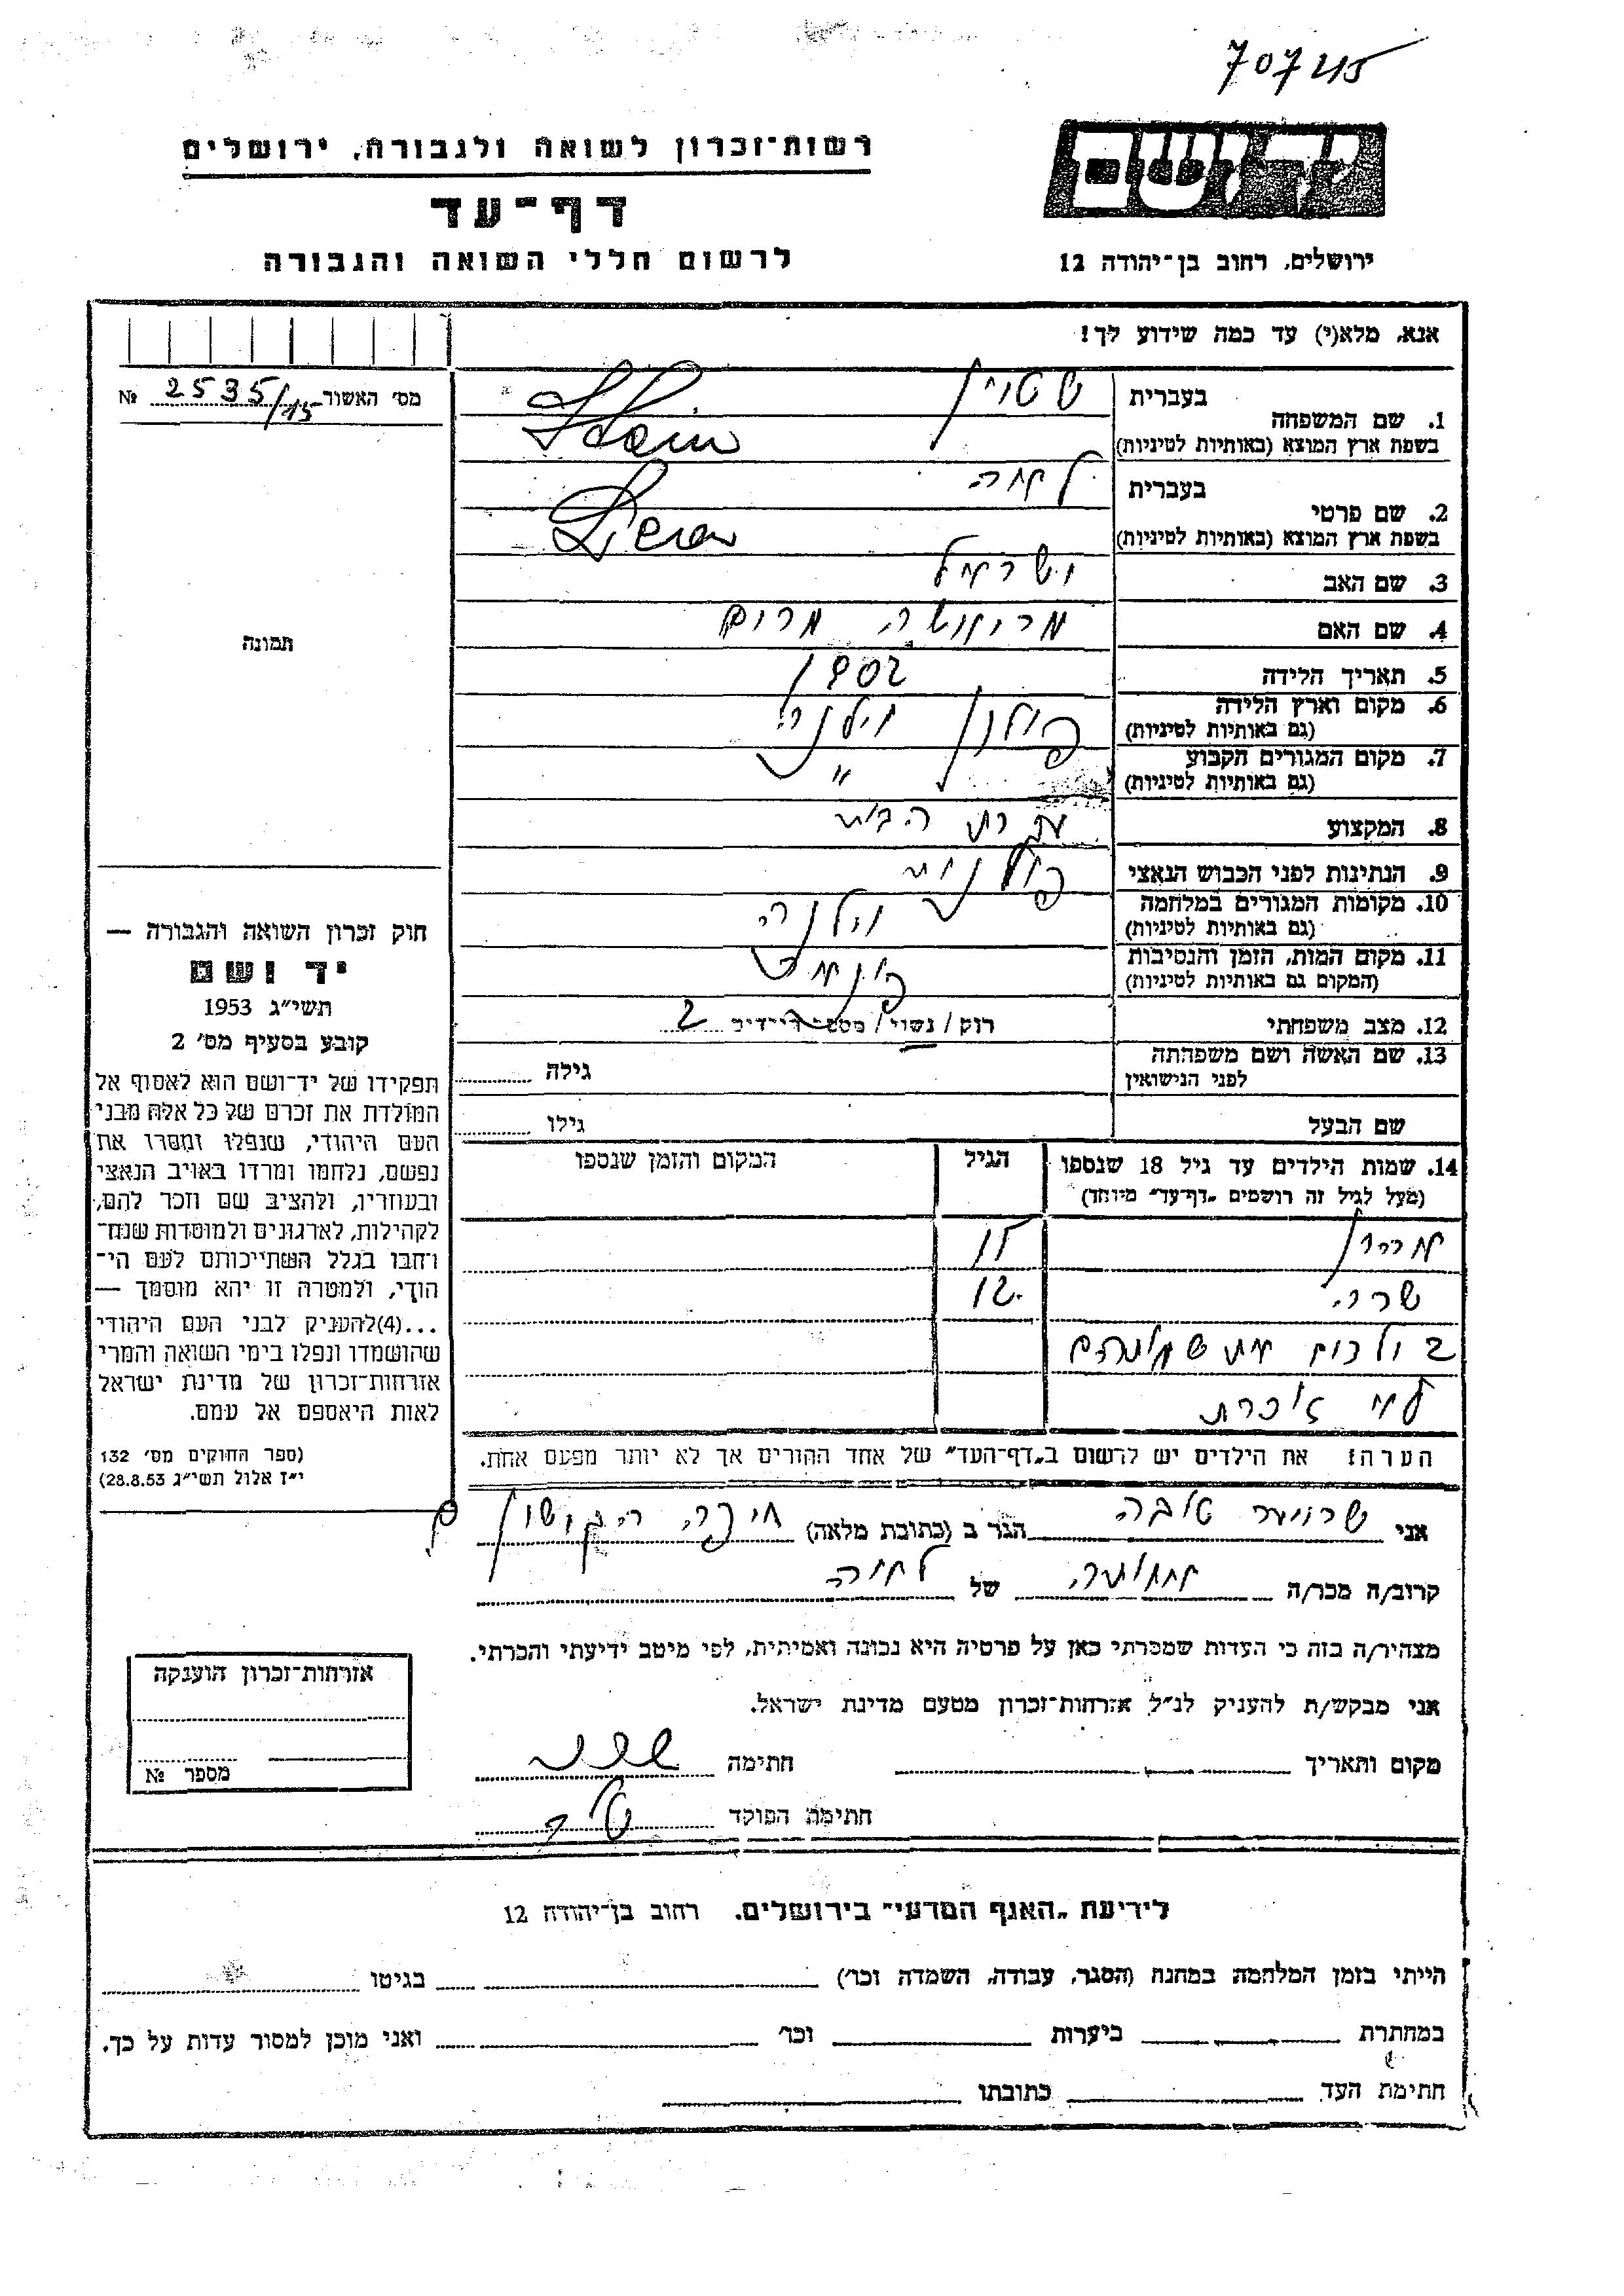 707215
רשות־זכרון לשואה ולגבורה, ירושלים
יד ושם
דף־עד
לרשום חללי השואה והגבורה
ירושלים, רחוב בן־יהודה 12
אנא, מלא(י) עד כמה שידוע לך!
מס׳ האשור 2535/15 №
1. שם המשפחה בעברית שטיין
בשפת ארץ המוצא (באותיות לטיניות) Stein
2. שם פרטי בעברית
בשפת ארץ המוצא (באותיות לטיניות)
3. שם האב ישראל
4. שם האם מרים
תמונה
5. תאריך הלידה 1902
6. מקום וארץ הלידה פולין וילנה
(גם באותיות לטיניות)
7. מקום המגורים הקבוע "
(גם באותיות לטיניות)
8. המקצוע עקרת הבית
9. הנתינות לפני הכבוש הנאצי פולנית
10. מקומות המגורים במלחמה וילנה
(גם באותיות לטיניות)
11. מקום המות, הזמן והנסיבות
(המקום גם באותיות לטיניות)
12. מצב משפחתי רוק / נשוי / מספר הילדים 2
13. שם האשה ושם משפחתה גילה
לפני הנישואין
שם הבעל גילו
חוק זכרון השואה והגבורה —
יד ושם
תשי״ג 1953
קובע בסעיף מס׳ 2
תפקידו של יד־ושם הוא לאסוף אל
המולדת את זכרם של כל אלה מבני
העם היהודי, שנפלו ומסרו את
נפשם, נלחמו ומרדו באויב הנאצי
ובעוזריו, ולהציב שם וזכר להם,
לקהילות, לארגונים ולמוסדות שנח־
רבו בגלל השתייכותם לעם הי־
הודי, ולמטרה זו יהא מוסמך —
...(4)להעניק לבני העם היהודי
שהושמדו ונפלו בימי השואה והמרי
אזרחות־זכרון של מדינת ישראל
לאות היאספם אל עמם.
(ספר החוקים מס׳ 132
י״ז אלול תשי״ג 28.8.53)
14. שמות הילדים עד גיל 18 שנספו הגיל המקום והזמן שנספו
(מעל לגיל זה רושמים „דף־עד״ מיוחד)
אהרון
שרה 12
לא זוכרת
הערה: את הילדים יש לרשום ב„דף־העד״ של אחד ההורים אך לא יותר מפעם אחת.
אני טובה הגר ב (כתובת מלאה) חיפה
קרוב/ה מכר/ה של
מצהיר/ה בזה כי העדות שמסרתי כאן על פרטיה היא נכונה ואמיתית, לפי מיטב ידיעתי והכרתי.
אני מבקש/ת להעניק לנ״ל אזרחות־זכרון מטעם מדינת ישראל.
מקום ותאריך חתימה
חתימת הפוקד
אזרחות־זכרון הוענקה
מספר №
לידיעת „האגף המדעי״ בירושלים. רחוב בן־יהודה 12
הייתי בזמן המלחמה במחנה (הסגר, עבודה, השמדה וכו׳) בגיטו
במחתרת ביערות וכו׳ ואני מוכן למסור עדות על כך.
חתימת העד כתובתו